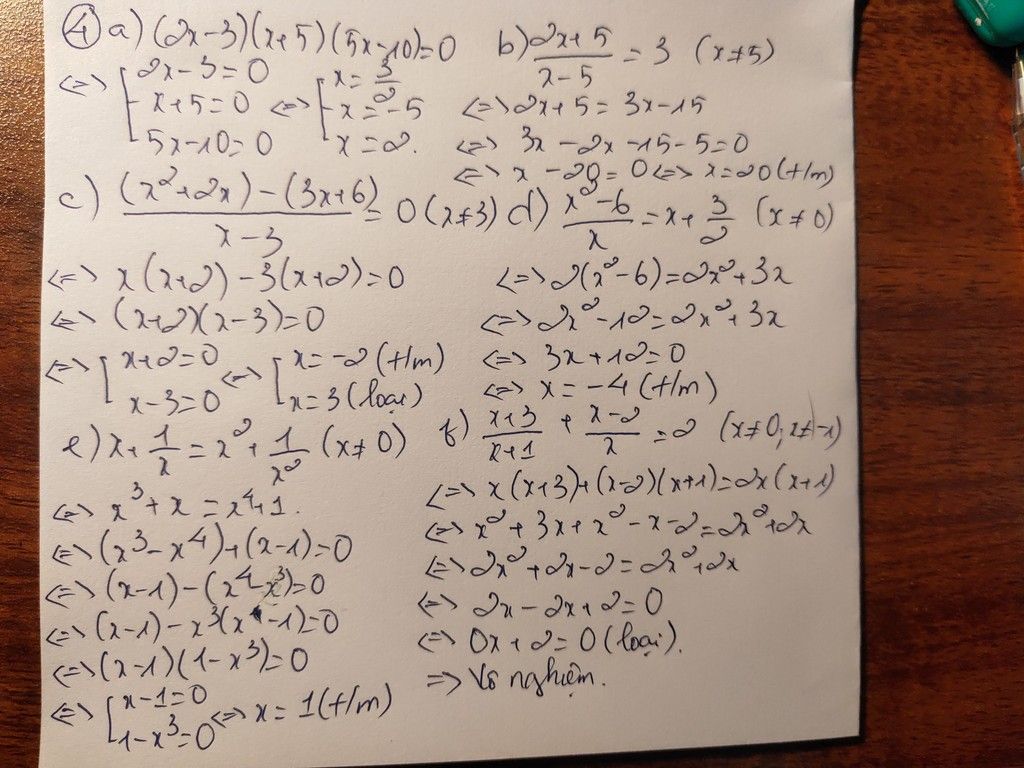 ④ a) (2x-3)(x+5)(5x-10)=0
<=> [2x-3=0 <=> [x=3/2
x+5=0 x=-5
5x-10=0 x=2.
b) (2x+5)/(x-5) = 3 (x≠5)
<=> 2x+5 = 3x-15
<=> 3x-2x-15-5=0
<=> x-20=0 <=> x=20 (t/m)
c) ((x²+2x)-(3x+6))/(x-3) = 0 (x≠3)
<=> x(x+2)-3(x+2)=0
<=> (x+2)(x-3)=0
<=> [x+2=0 <=> [x=-2 (t/m)
x-3=0 x=3 (loại)
d) (x²-6)/x = x+3/2 (x≠0)
<=> 2(x²-6)=2x²+3x
<=> 2x²-12=2x²+3x
<=> 3x+12=0
<=> x=-4 (t/m)
e) x+1/x = x²+1/x² (x≠0)
<=> x³+x = x⁴+1.
<=> (x³-x⁴)+(x-1)=0
<=> (x-1)-(x⁴-x³)=0
<=> (x-1)-x³(x-1)=0
<=> (x-1)(1-x³)=0
<=> [x-1=0 <=> x=1 (t/m)
1-x³=0
f) (x+3)/(x+1) + (x-2)/x = 2 (x≠0; x≠-1)
<=> x(x+3)+(x-2)(x+1)=2x(x+1)
<=> x²+3x+x²-x-2=2x²+2x
<=> 2x²+2x-2=2x²+2x
<=> 2x-2x+2=0
<=> 0x+2=0 (loại).
=> Vô nghiệm.